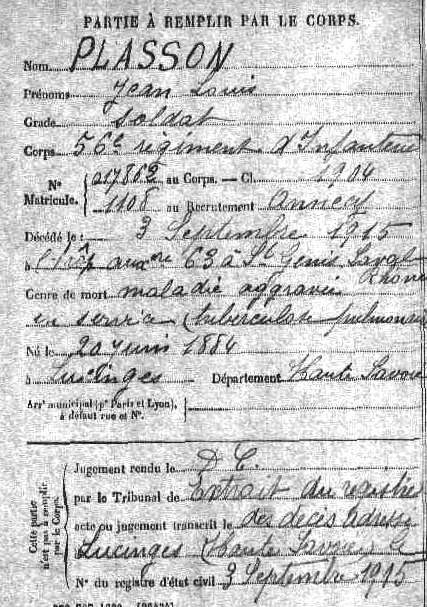 PARTIE À REMPLIR PAR LE CORPS.
Nom PLASSON
Prénoms Jean Louis
Grade soldat
Corps 56e régiment d'Infanterie
Nº Matricule. { 017862 au Corps. — Cl. 1904
1108 au Recrutement Annecy
Décédé le : 3 Septembre 1915
à Hôp auxre 63 à St Genis Laval Rhône
Genre de mort maladie aggravée
en service (tuberculose pulmonaire
Né le 20 juin 1884
à Lucinges Département Haute Savoie
Arrt municipal (pr Paris et Lyon), à défaut rue et Nº.
Cette partie n'est pas à remplir par le Corps.
Jugement rendu le D C.
par le Tribunal de Extrait du registre
acte ou jugement transcrit le des décès adressé
Lucinges (Haute Savoie) le
Nº du registre d'état civil 3 Septembre 1915